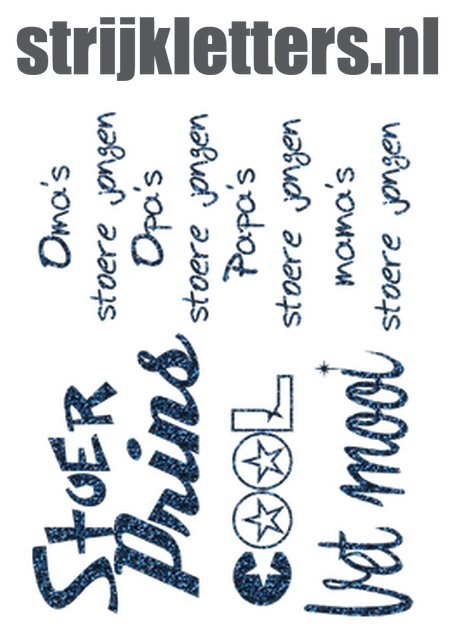 strijkletters.nl
Oma's
stoere jongen
Opa's
stoere jongen
Papa's
stoere jongen
mama's
stoere jongen
Stoer
Prins
COOL
Vet mooi